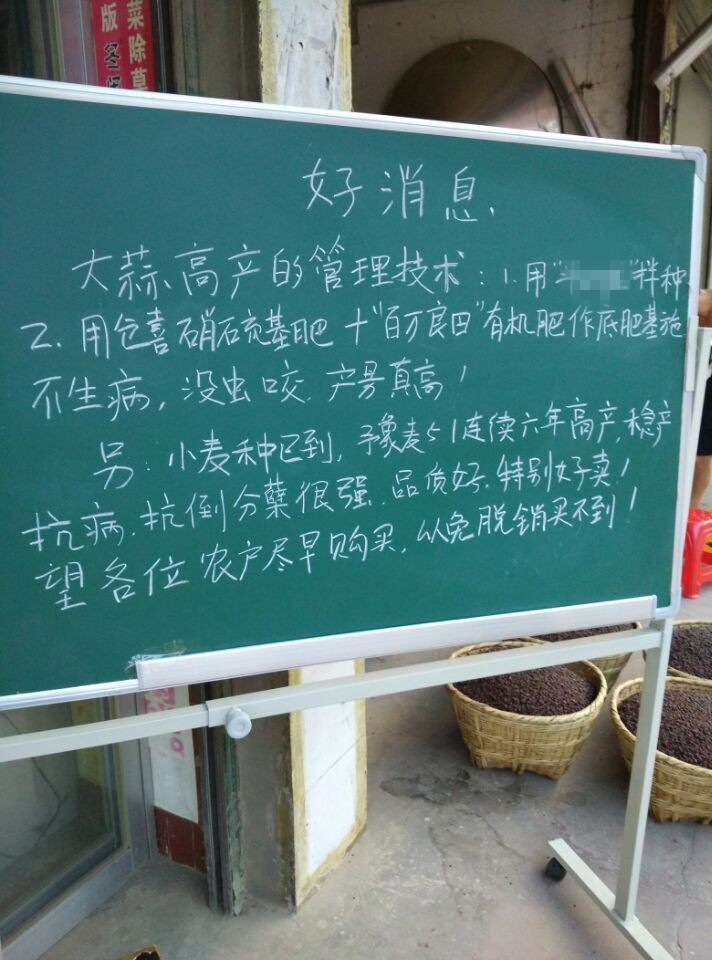 菜除草
版
好消息
大蒜高产的管理技术：1.用"半"拌种
2.用仓喜硝硫基肥+"百万良田"有机肥作底肥基施
不生病，没虫咬.产量真高！
另：小麦种已到，予豫麦51连续六年高产，稳产
抗病.抗倒分蘖很强.品质好.特别好卖！
望各位农户尽早购买，以免脱销买不到！